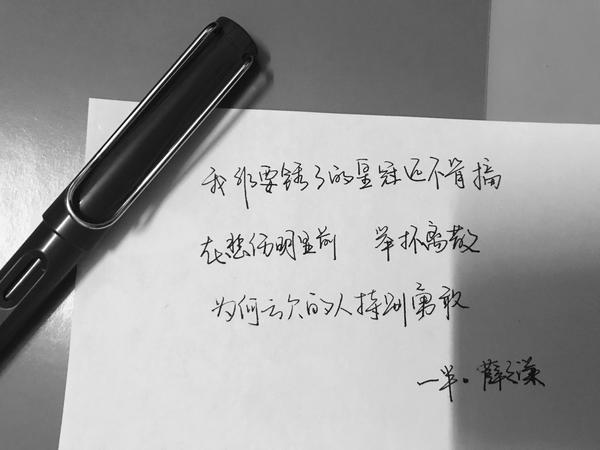 我非要锈了的皇冠还不肯摘
在悲伤明显前 举杯离散
为何亏欠的人特别勇敢
一半。薛之谦